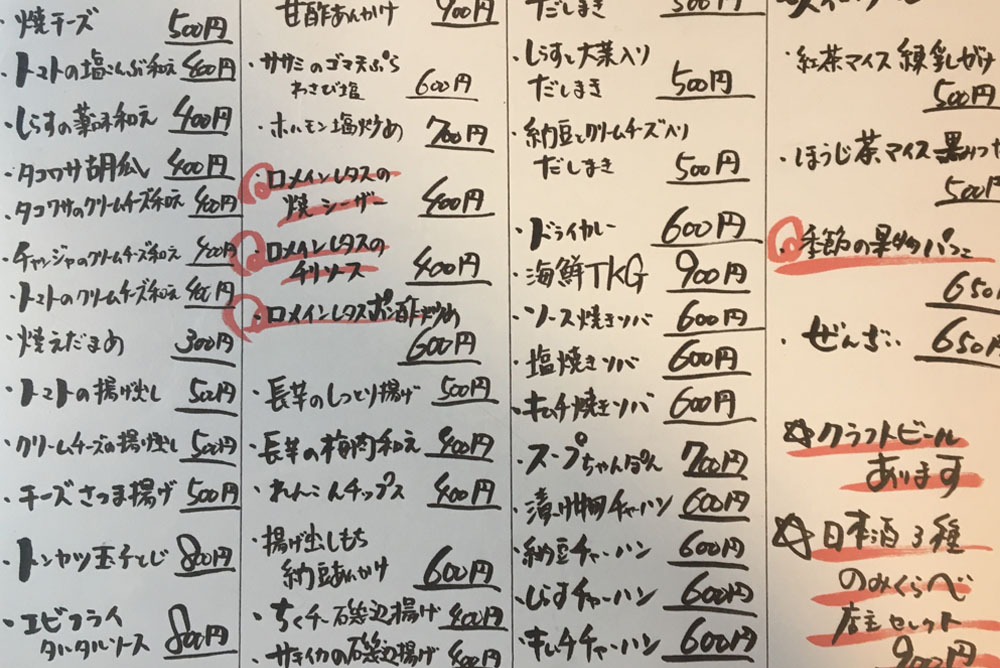 ・焼チーズ 500円
・トマトの塩こんぶ和え 400円
・しらすの薬味和え 400円
・タコワサ胡瓜 400円
・タコワサのクリームチーズ和え 400円
・チャンジャのクリームチーズ和え 400円
・トマトのクリームチーズ和え 400円
・焼えだまめ 300円
・トマトの揚げ出し 500円
・クリームチーズの揚げ出し 500円
・チーズさつま揚げ 500円
・トンカツ玉子とじ 800円
・エビフライ
タルタルソース 800円
甘酢あんかけ 900円
・ササミのゴマ天ぷら
わさび塩 600円
・ホルモン塩炒め 700円
・ロメインレタスの
焼シーザー 400円
・ロメインレタスの
チリソース 400円
・ロメインレタスポン酢炒め
600円
・長芋のしっとり揚げ 500円
・長芋の梅肉和え 400円
・れんこんチップス 400円
・揚げ出しもち
納豆あんかけ 600円
・ちくチー磯辺揚げ 400円
・サキイカの磯辺揚げ 400円
だしまき 500円
・しらすと大葉入り
だしまき 500円
・納豆とクリームチーズ入り
だしまき 500円
・ドライカレー 600円
・海鮮TKG 900円
・ソース焼きソバ 600円
・塩焼きソバ 600円
・キムチ焼きソバ 600円
・スープちゃんぽん 700円
・漬け物チャーハン 600円
・納豆チャーハン 600円
・しらすチャーハン 600円
・キムチチャーハン 600円
・紅茶マイス練乳がけ
500円
・ほうじ茶マイス黒みつ
500円
・季節の果物パフェ
650円
・ぜんざい 650円
☆クラフトビール
あります
☆日本酒3種
のみくらべ
店主セレクト
900円